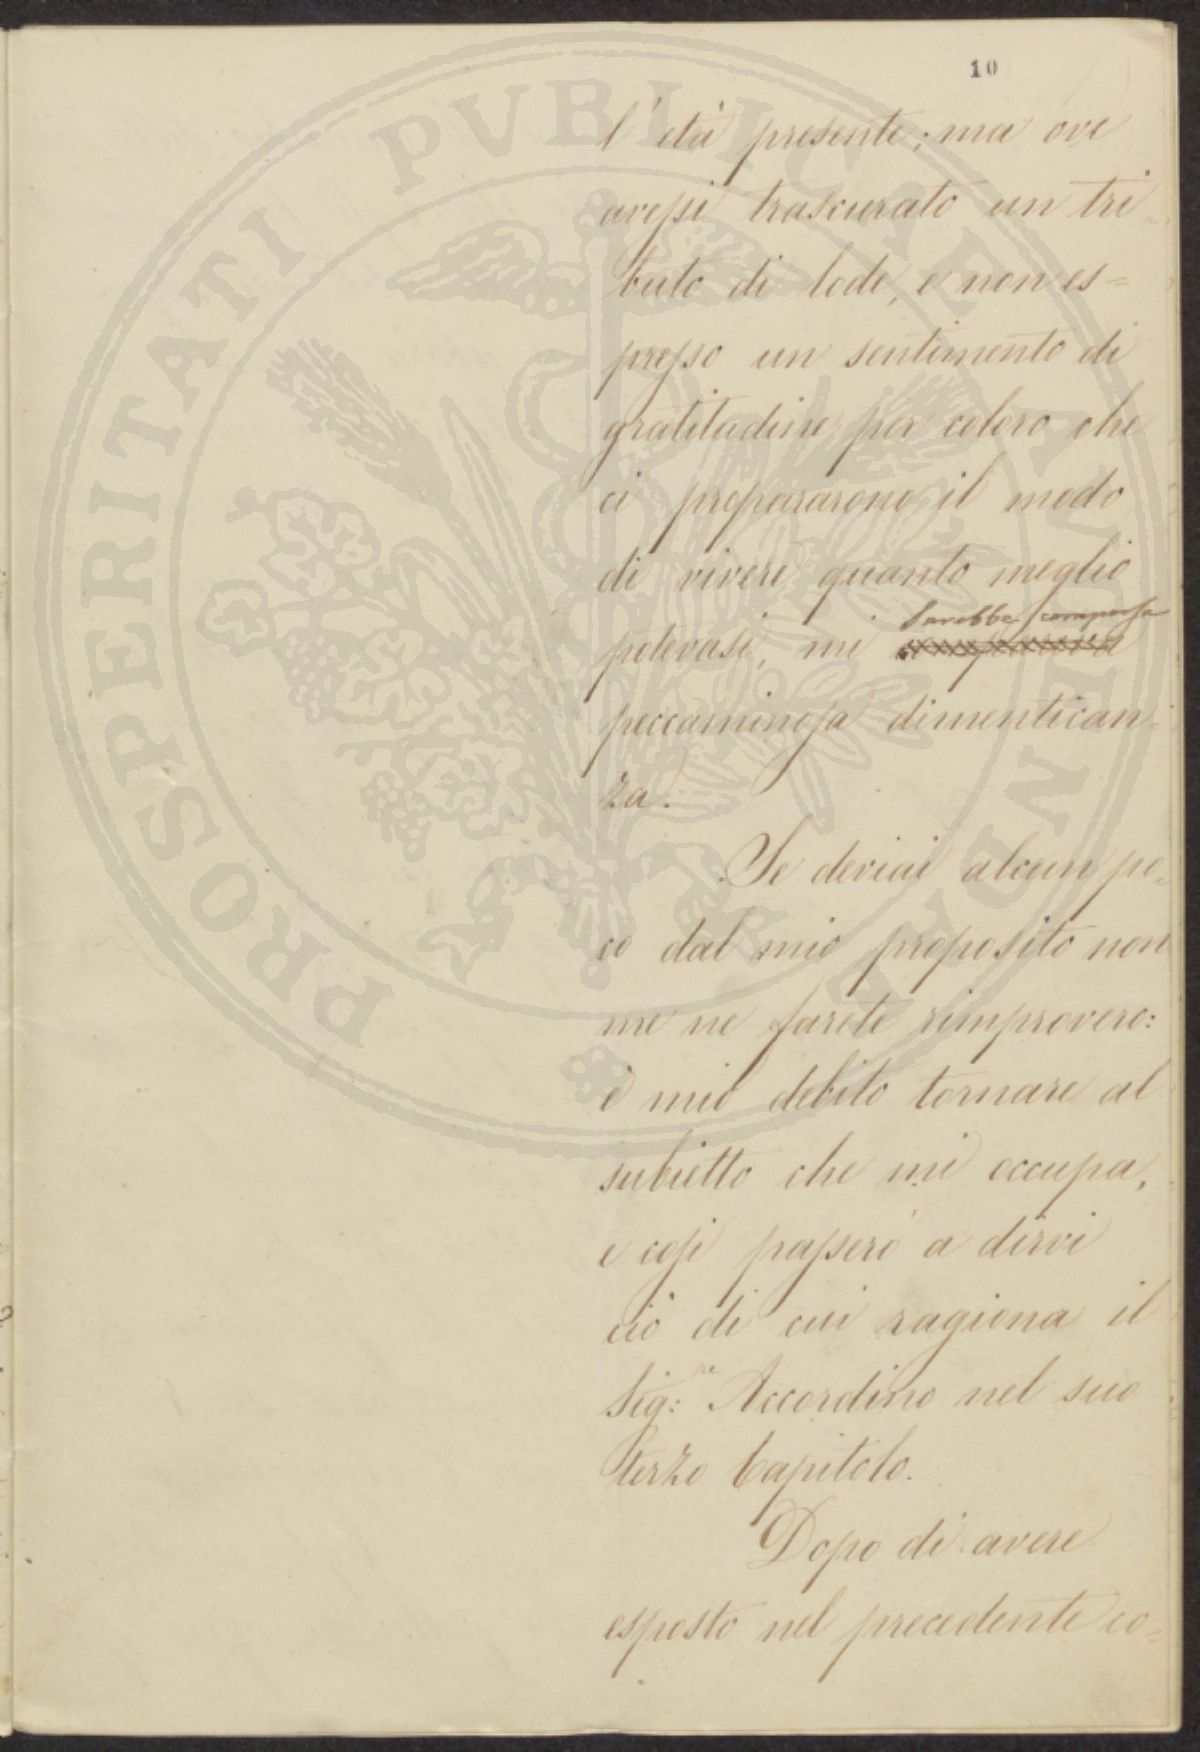 10
l'età presente; ma ove
avessi trascurato un tri-
buto di lode, e non es=
presso un sentimento di
gratitudine per coloro che
ci prepararono il modo
di vivere quanto meglio
sarebbe comparsa
potevasi, mi
peccaminosa dimentican-
za.
Se deviai alcun po=
co dal mio proposito non
me ne farete rimprovero:
è mio debito tornare al
subietto che mi occupa,
e così passerò a dirvi
ciò di cui ragiona il
Sig:re Accordino nel suo
terzo Capitolo.
Dopo di avere
esposto nel precedente co=
PROSPERITATI PVBLICAE AVGENDAE